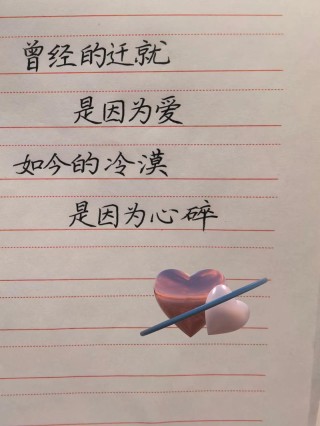 曾经的迁就
是因为爱
如今的冷漠
是因为心碎